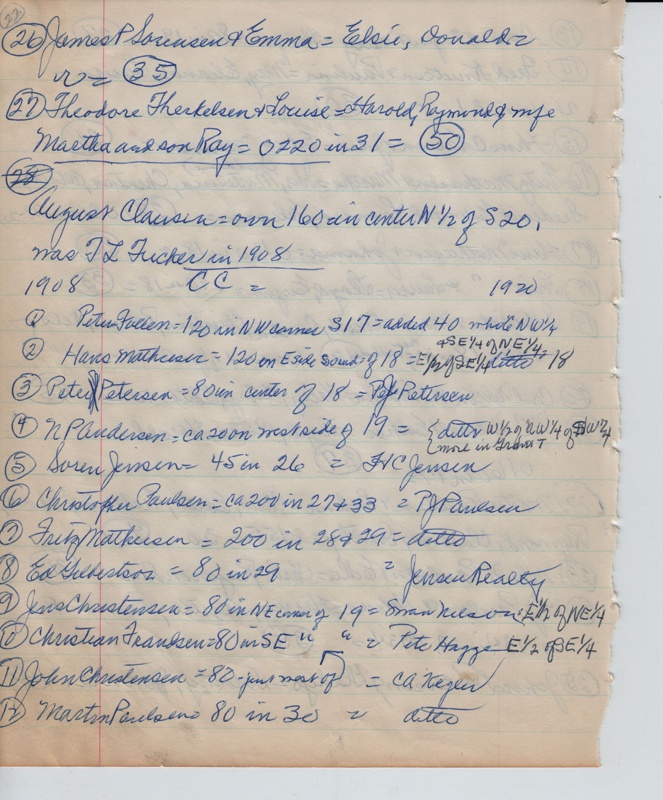 22
(26) James P Sorensen & Emma = Elsie, Donald =
r = (35)
(27) Theodore Therkelsen & Louise = Harold, Raymond & wife
Martha and son Ray = O220 in 31 = (50)
28
August Clausen = own 160 in center N 1/2 of S20,
was T L Tucker in 1908
1908 CC = 1920
(1) Peter Follen = 120 in NW corner S17 = added 40 whole NW 1/4
+ SE 1/4 of NE 1/4
(2) Hans Mathiesen = 120 on E side Sound of 18 = E 1/2 of SE 1/4 ditto 18
(3) Peter Petersen = 80 in center of 18 = PJ Petersen
(4) N P Andersen = ca 20 on west side of 19 = { ditto W 1/2 of NW 1/4 of SW 1/4
more in Grant
(5) Soren Jensen = 45 in 26 = H C Jensen
(6) Christopher Paulsen = ca 200 in 27 + 33 = PJ Paulsen
(7) Fritz Mathiesen = 200 in 28 + 29 = ditto
(8) Ed Gilbertson = 80 in 29 = Jensen Realty
(9) Jens Christensen = 80 in NE corner of 19 = Nelson: E 1/2 of NE 1/4
(10) Christian Frandsen = 80 in SE " " = Pete Hagge E 1/2 of SE 1/4
(11) John Christensen = 80 - just west of = CA Kepler
(12) Martin Paulsen = 80 in 30 = ditto